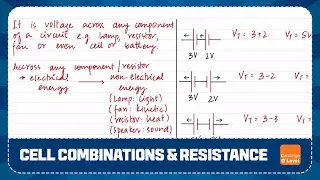 It is voltage across any component
of a circuit e.g. lamp, resistor,
fan or even cell or battery.
Accross any component / resistor
→ electrical → non-electrical
energy energy
(lamp: light)
(fan: kinetic)
(resistor: heat)
(speaker: sound)
3V 2V
V_T = 3+2 V_T = 5V
V_T = 3-2 V_T =
V_T = 3-3 V_T
CELL COMBINATIONS & RESISTANCE
O Level